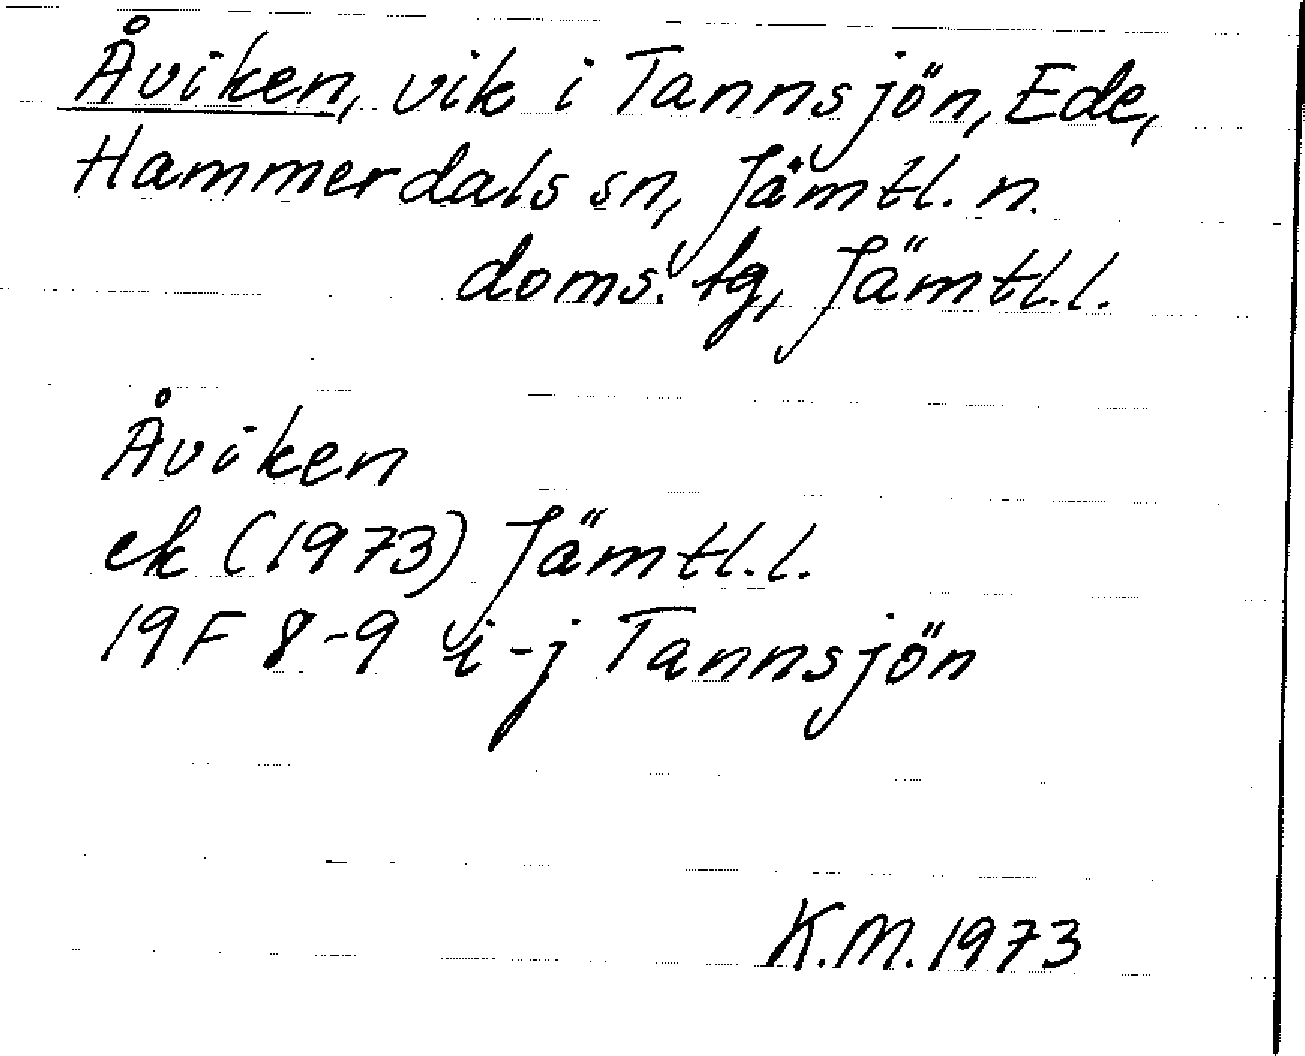 Åviken, vik i Tannsjön, Ede,
Hammerdals sn, Jämtl. n.
doms. tg, Jämtl.l.
Åviken
ek (1973) Jämtl.l.
19F 8-9 i-j Tannsjön
K.M.1973